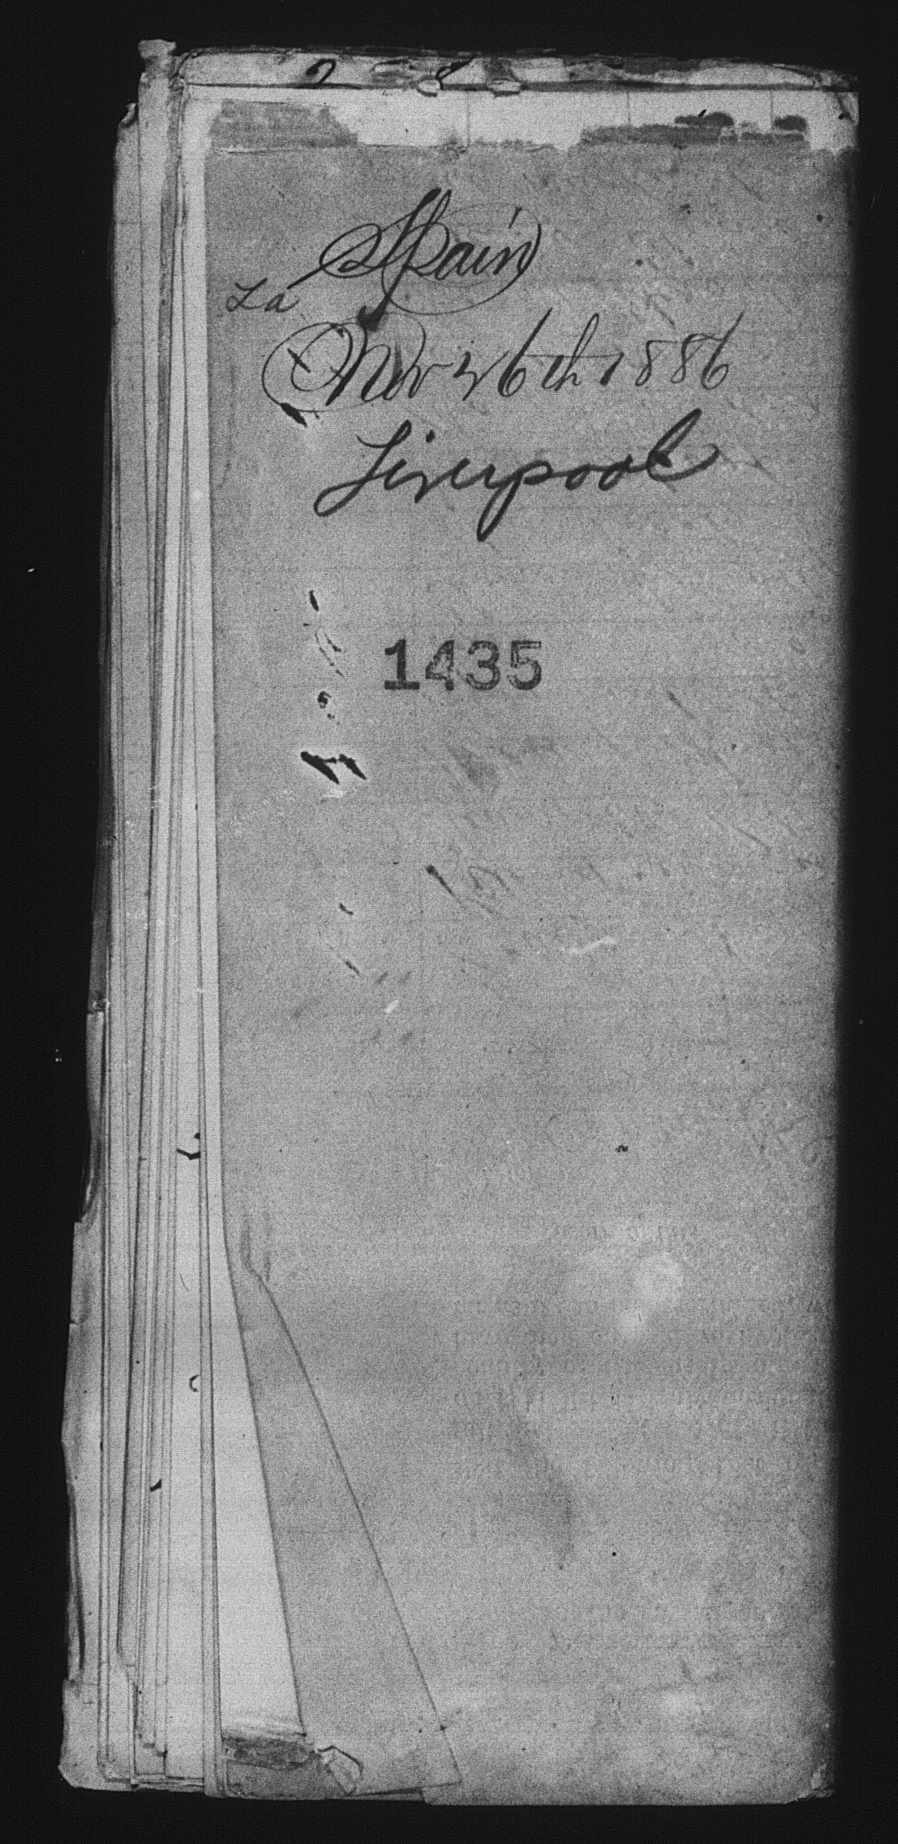 Spain
La
Nov 26th 1886
Liverpool
1435